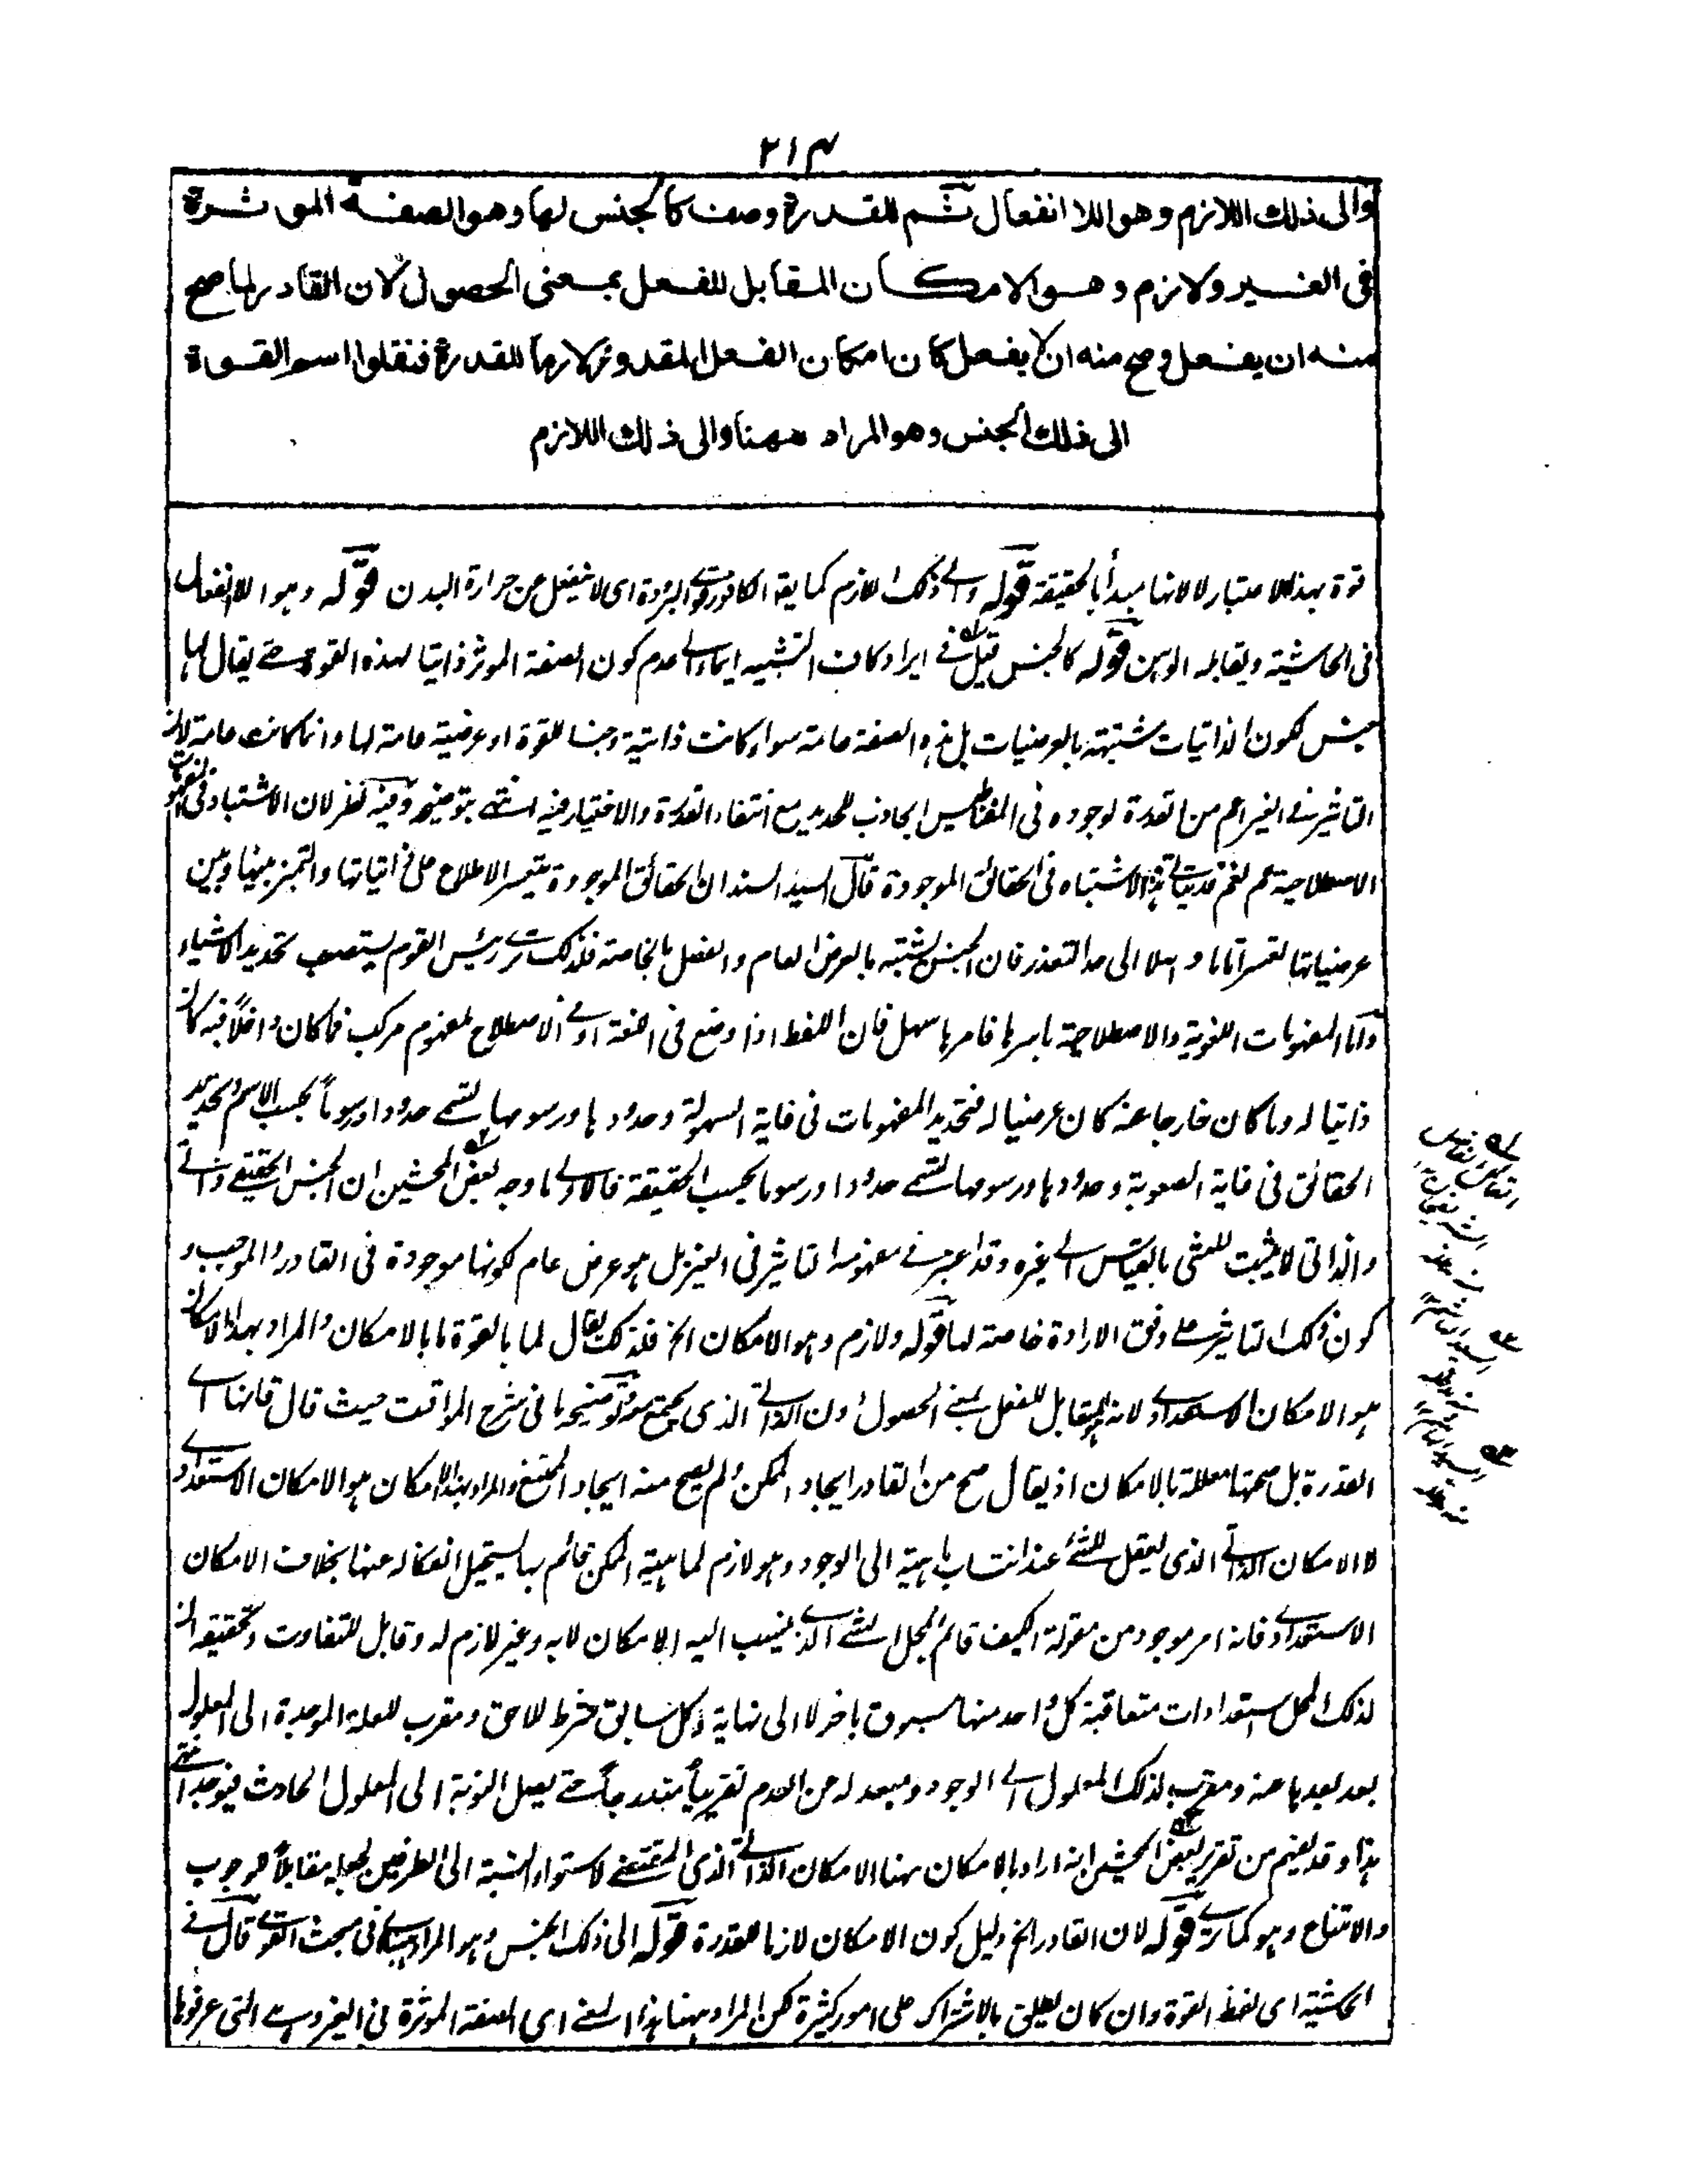 ٢١٤
والى ذلك اللازم وهو اللا انفعال ثم للقدرة وصف كالجنس لها وهو الصفة الموثرة
فى الغير ولازم وهو الامكان المقابل للفعل بمعنى الحصول لان القادر لما صح
منه ان يفعل وصح منه ان لا يفعل كان امكان الفعل المقدور لازما للقدرة فنقلوا اسم القوة
الى ذلك الجنس وهو المراد ههنا والى ذلك اللازم
قوة بهذا الاعتبار لا لانها مبدأ بالحقيقة قوله والى ذلك اللازم كما يقال الكافور قوى البرودة اى لا ينفعل عن حرارة البدن قوله وهو اللا انفعال
فى الحاشية ويقابله الوهن قوله كالجنس قيل فى ايراد كاف التشبيه ايماء الى عدم كون الصفة الموثرة ذاتيا لهذه القوة حتى يقال لها
جنس لكون الذاتيات مشتبهة بالعرضيات بل هذه الصفة عامة سواء كانت ذاتية وجنسا للقوة او عرضية عامة لها وانما كانت عامة لان
التاثير فى الغير اعم من القدرة لوجوده فى المغناطيس الجاذب للحديد مع انتفاء القدرة والاختيار فيه انتهى بتوضيح وفيه نظر لان الاشتباه فى المفهومات
الاصطلاحية عم لغم قد يتأتى هذا الاشتباه فى الحقائق الموجودة قال السيد السند ان الحقائق الموجودة يتعسر الاطلاع على ذاتياتها والتميز بينها وبين
عرضياتها تعسرا تاما واصلا الى حد التعذر فان الجنس يشتبه بالعرض العام والفصل بالخاصة فلذلك ترى رئيس القوم يستصعب تحديد الاشياء
واما المفهومات اللغوية والاصطلاحية باسرها فامرها سهل فان اللفظ اذا وضع فى اللغة او فى الاصطلاح لمفهوم مركب فما كان داخلا فيه كان
ذاتيا له وما كان خارجا عنه كان عرضيا له فتحديد المفهومات فى غاية السهولة وحدودها ورسومها تسمى حدودا ورسوما بحسب الاسم وتحديد
الحقائق فى غاية الصعوبة وحدودها ورسومها تسمى حدودا ورسوما بحسب الحقيقة فالاولى ما وجه بعض المحشين ان الجنس الحقيقى ذاتى
والذاتى لا يثبت للشى بالقياس الى غيره وقد اعتبر فى مفهومه التاثير فى الغير بل هو عرض عام لكونها موجودة فى القادر والموجب و
كون ذلك التاثير على وفق الارادة خاصة لها قوله ولازم وهو الامكان الخ فلذلك يقال لما بالقوة ما بالامكان والمراد بهذا الامكان
هو الامكان الاستعدادى لانه المقابل للفعل بمعنى الحصول دون الذاتى الذى يجتمع معه وتوضيحه ما فى شرح المواقف حيث قال فانها اى
القدرة بل صحتها معللة بالامكان اذ يقال صح من القادر ايجاد الممكن ولم يصح منه ايجاد الممتنع والمراد بهذا الامكان هو الامكان الاستعدادى
لا الامكان الذاتى الذى يعقل للشئ عند انتساب ماهيته الى الوجود وهو لازم لماهية الممكن قائم بها يستحيل انفكاكه عنها بخلاف الامكان
الاستعدادى فانه امر موجود من مقولة الكيف قائم بمحل الشئ الذى ينسب اليه الامكان لا به وغير لازم له وقابل للتفاوت وتحقيقه ان
لذلك المحل استعدادات متعاقبة كل واحد منها مسبوق باخر لا الى نهاية وكل سابق شرط للاحق ومقرب للعلة الموجدة الى المعلول
بعد بعدها عنه ومقرب لذلك المعلول الى الوجود ومبعد له من العدم تقريبا متدرجا حتى يصل النوبة الى المعلول الحادث فيوجد انتهى
هذا وقد يفهم من تقرير بعض المحشين انه اراد بالامكان ههنا الامكان الذاتى الذى المقتضى لاستواء النسبة الى الطرفين بجعله مقابلا للوجوب
والامتناع وهو كما ترى قوله لان القادر الخ دليل كون الامكان لازما للقدرة قوله الى ذلك الجنس وهو المراد ههنا اى فى مبحث القوى قال فى
الحاشية اى لفظ القوة وان كان يطلق بالاشتراك على امور كثيرة لكن المراد ههنا هذا المعنى اى الصفة الموثرة فى الغير وهى التى عرفوها